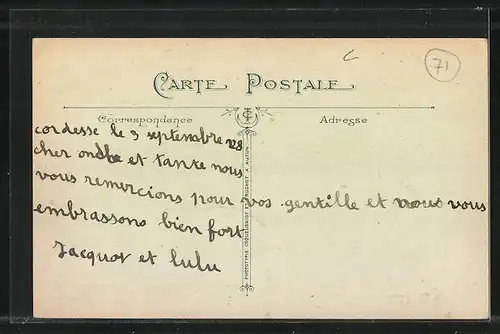 71
CARTE POSTALE
Correspondance
Adresse
cordesse le 3 septembre 128
cher ondle et tante nous
vous remercions pour vos gentille et nous vous
embrassons bien fort
Jacquot et lulu